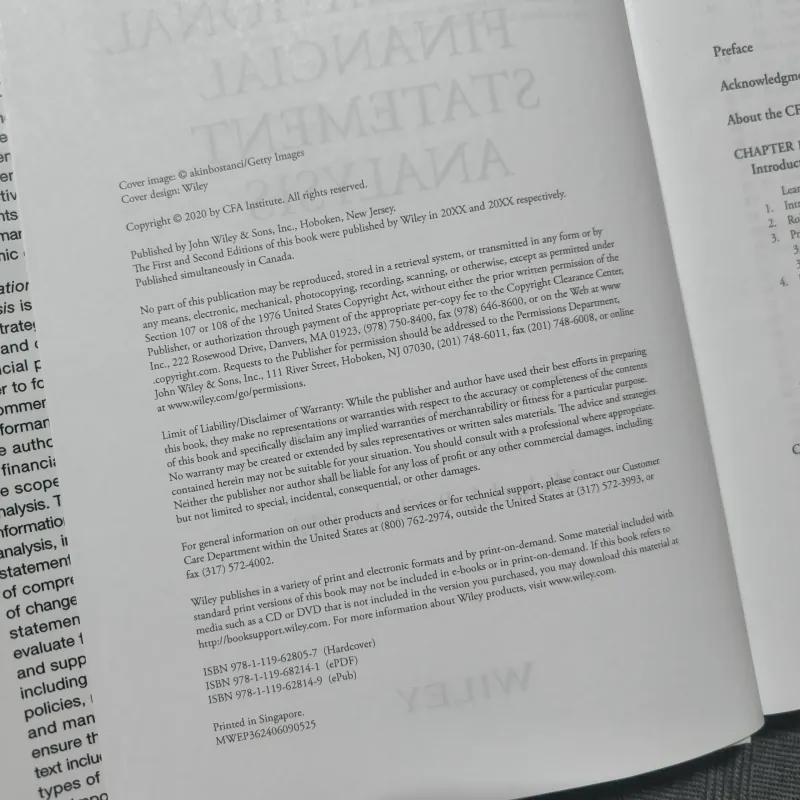 Cover image: © akinbostanci/Getty Images
Cover design: Wiley
Copyright © 2020 by CFA Institute. All rights reserved.
Published by John Wiley & Sons, Inc., Hoboken, New Jersey.
The First and Second Editions of this book were published by Wiley in 20XX and 20XX respectively.
Published simultaneously in Canada.
No part of this publication may be reproduced, stored in a retrieval system, or transmitted in any form or by
any means, electronic, mechanical, photocopying, recording, scanning, or otherwise, except as permitted under
Section 107 or 108 of the 1976 United States Copyright Act, without either the prior written permission of the
Publisher, or authorization through payment of the appropriate per-copy fee to the Copyright Clearance Center,
Inc., 222 Rosewood Drive, Danvers, MA 01923, (978) 750-8400, fax (978) 646-8600, or on the Web at www
.copyright.com. Requests to the Publisher for permission should be addressed to the Permissions Department,
John Wiley & Sons, Inc., 111 River Street, Hoboken, NJ 07030, (201) 748-6011, fax (201) 748-6008, or online
at www.wiley.com/go/permissions.
Limit of Liability/Disclaimer of Warranty: While the publisher and author have used their best efforts in preparing
this book, they make no representations or warranties with respect to the accuracy or completeness of the contents
of this book and specifically disclaim any implied warranties of merchantability or fitness for a particular purpose.
No warranty may be created or extended by sales representatives or written sales materials. The advice and strategies
contained herein may not be suitable for your situation. You should consult with a professional where appropriate.
Neither the publisher nor author shall be liable for any loss of profit or any other commercial damages, including
but not limited to special, incidental, consequential, or other damages.
For general information on our other products and services or for technical support, please contact our Customer
Care Department within the United States at (800) 762-2974, outside the United States at (317) 572-3993, or
fax (317) 572-4002.
Wiley publishes in a variety of print and electronic formats and by print-on-demand. Some material included with
standard print versions of this book may not be included in e-books or in print-on-demand. If this book refers to
media such as a CD or DVD that is not included in the version you purchased, you may download this material at
http://booksupport.wiley.com. For more information about Wiley products, visit www.wiley.com.
ISBN 978-1-119-62805-7 (Hardcover)
ISBN 978-1-119-68214-1 (ePDF)
ISBN 978-1-119-62814-9 (ePub)
Printed in Singapore.
MWEP362406090525
Preface
About the
CHAPTER
1.
2.
3.
4.
is
and
scope
of
of change
statemen
evaluate
and
including
policies,
and
ensure
text
types of